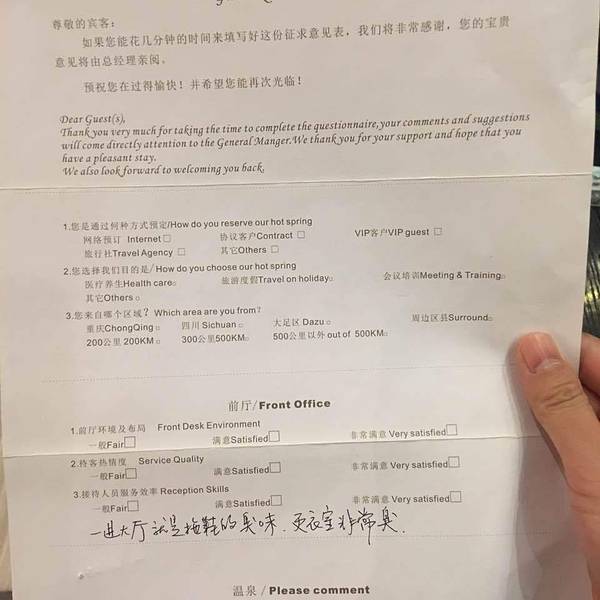 尊敬的宾客：
如果您能花几分钟的时间来填写好这份征求意见表，我们将非常感谢，您的宝贵
意见将由总经理亲阅。
预祝您在过得愉快！并希望您能再次光临！
Dear Guest(s),
Thank you very much for taking the time to complete the questionnaire,your comments and suggestions
will come directly attention to the General Manger.We thank you for your support and hope that you
have a pleasant stay.
We also look forward to welcoming you back.
1.您是通过何种方式预定/How do you reserve our hot spring
网络预订 Internet□ 协议客户Contract □ VIP客户VIP guest □
旅行社Travel Agency □ 其它Others □
2.您选择我们目的是/How do you choose our hot spring
医疗养生Health care□ 旅游度假Travel on holiday□ 会议培训Meeting & Training□
其它Others □
3.您来自哪个区域？Which area are you from?
重庆ChongQing □ 四川 Sichuan □ 大足区 Dazu □ 周边区县Surround□
200公里 200KM□ 300公里500KM□ 500公里以外out of 500KM□
前厅/Front Office
1.前厅环境及布局 Front Desk Environment
一般Fair□ 满意Satisfied□ 非常满意 Very satisfied□
2.待客热情度 Service Quality
一般Fair□ 满意Satisfied□ 非常满意 Very satisfied□
3.接待人员服务效率 Reception Skills
一般Fair□ 满意Satisfied□ 非常满意 Very satisfied□
一进大厅就是拖鞋的臭味.更衣室非常臭.
温泉/Please comment